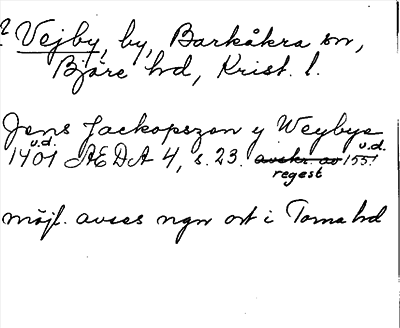 ? Vejby, by, Barkåkra sn,
Bjäre hd, Krist. l.
Jens Jackopszon y Weybye
u.d. u.d.
1401 ÆDA 4, s. 23. avskr. av 1551
regest
möjl. avses ngn ort i Torna hd